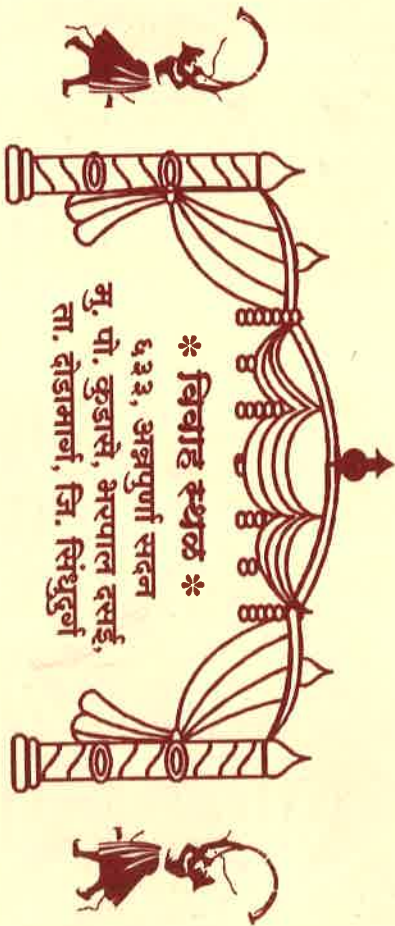 * विवाह स्थळ *
६३२, अन्नपुर्णा सदन
मु. पो. कुडासे, भरपाल दसई,
ता. दोडामार्ग, जि. सिंधुदुर्ग